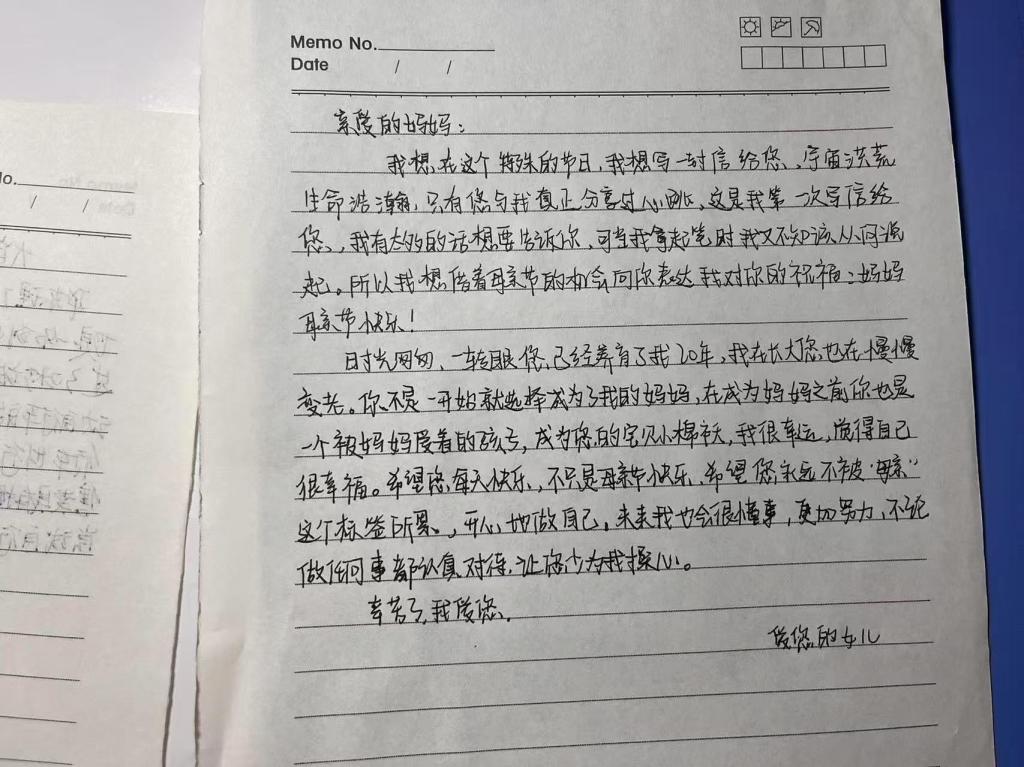 Memo No.
Date / /
亲爱的妈妈:
我想在这个特殊的节日,我想写一封信给您、宇宙洪荒
生命浩瀚,只有您与我真正分享过心跳,这是我第一次写信给
您,我有太多的话想要告诉你,可当我拿起笔时我又不知该从何说
起。所以我想借着母亲节的机会向你表达我对你的祝福:妈妈
母亲节快乐!
时光匆匆、一转眼您已经养育了我20年,我在长大您也在慢慢
变老。你不是一开始就选择成为了我的妈妈,在成为妈妈之前你也是
一个被妈妈爱着的孩子,成为您的宝贝小棉袄,我很幸运,觉得自己
很幸福。希望您每天快乐,不只是母亲节快乐,希望您永远不被“母亲”
这个标签所累,开心地做自己。未来我也会很懂事,更加努力,不论
做任何事都认真对待,让您少为我操心。
辛苦了,我爱您。
爱您的女儿
No.
/ /